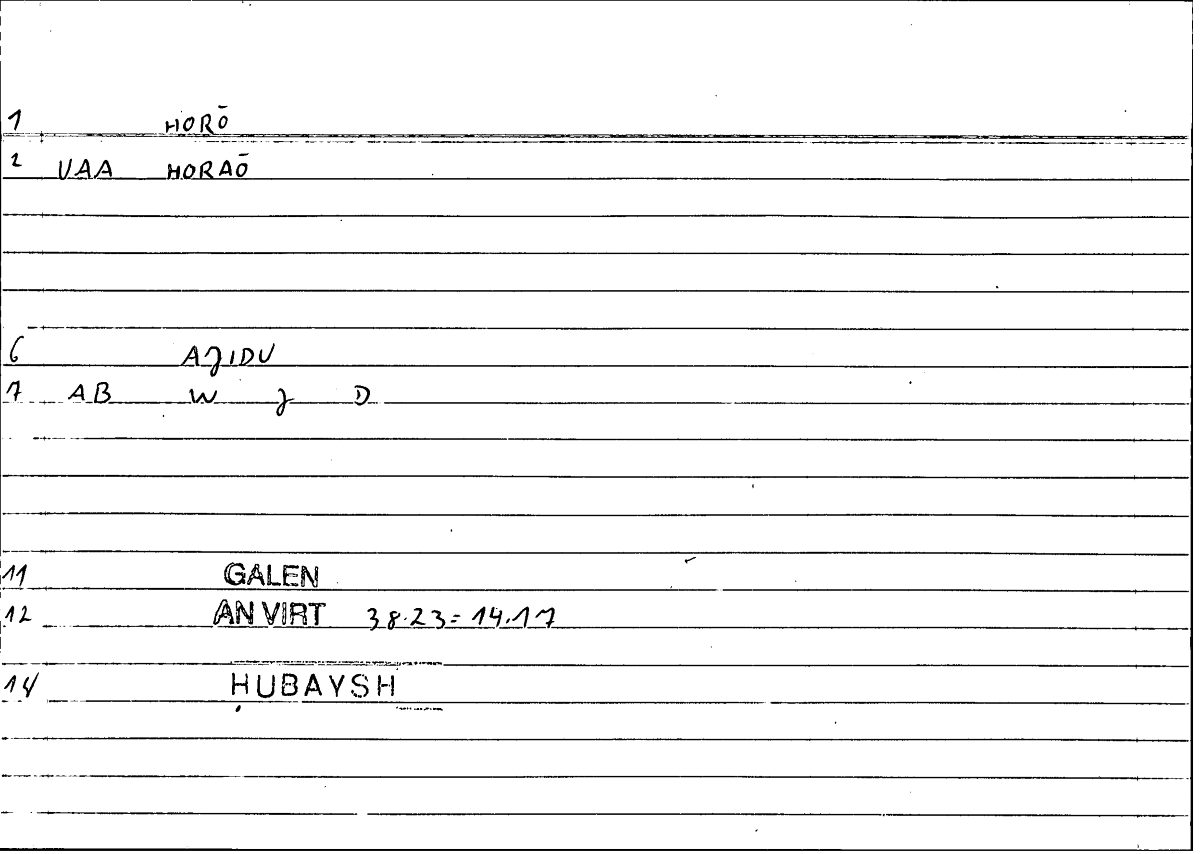 1 HORŌ
2 VAA HORAŌ
6 AJIDU
7 AB W J D
11 GALEN
12 AN VIRT 38.23=14.17
14 ḤUBAYSH